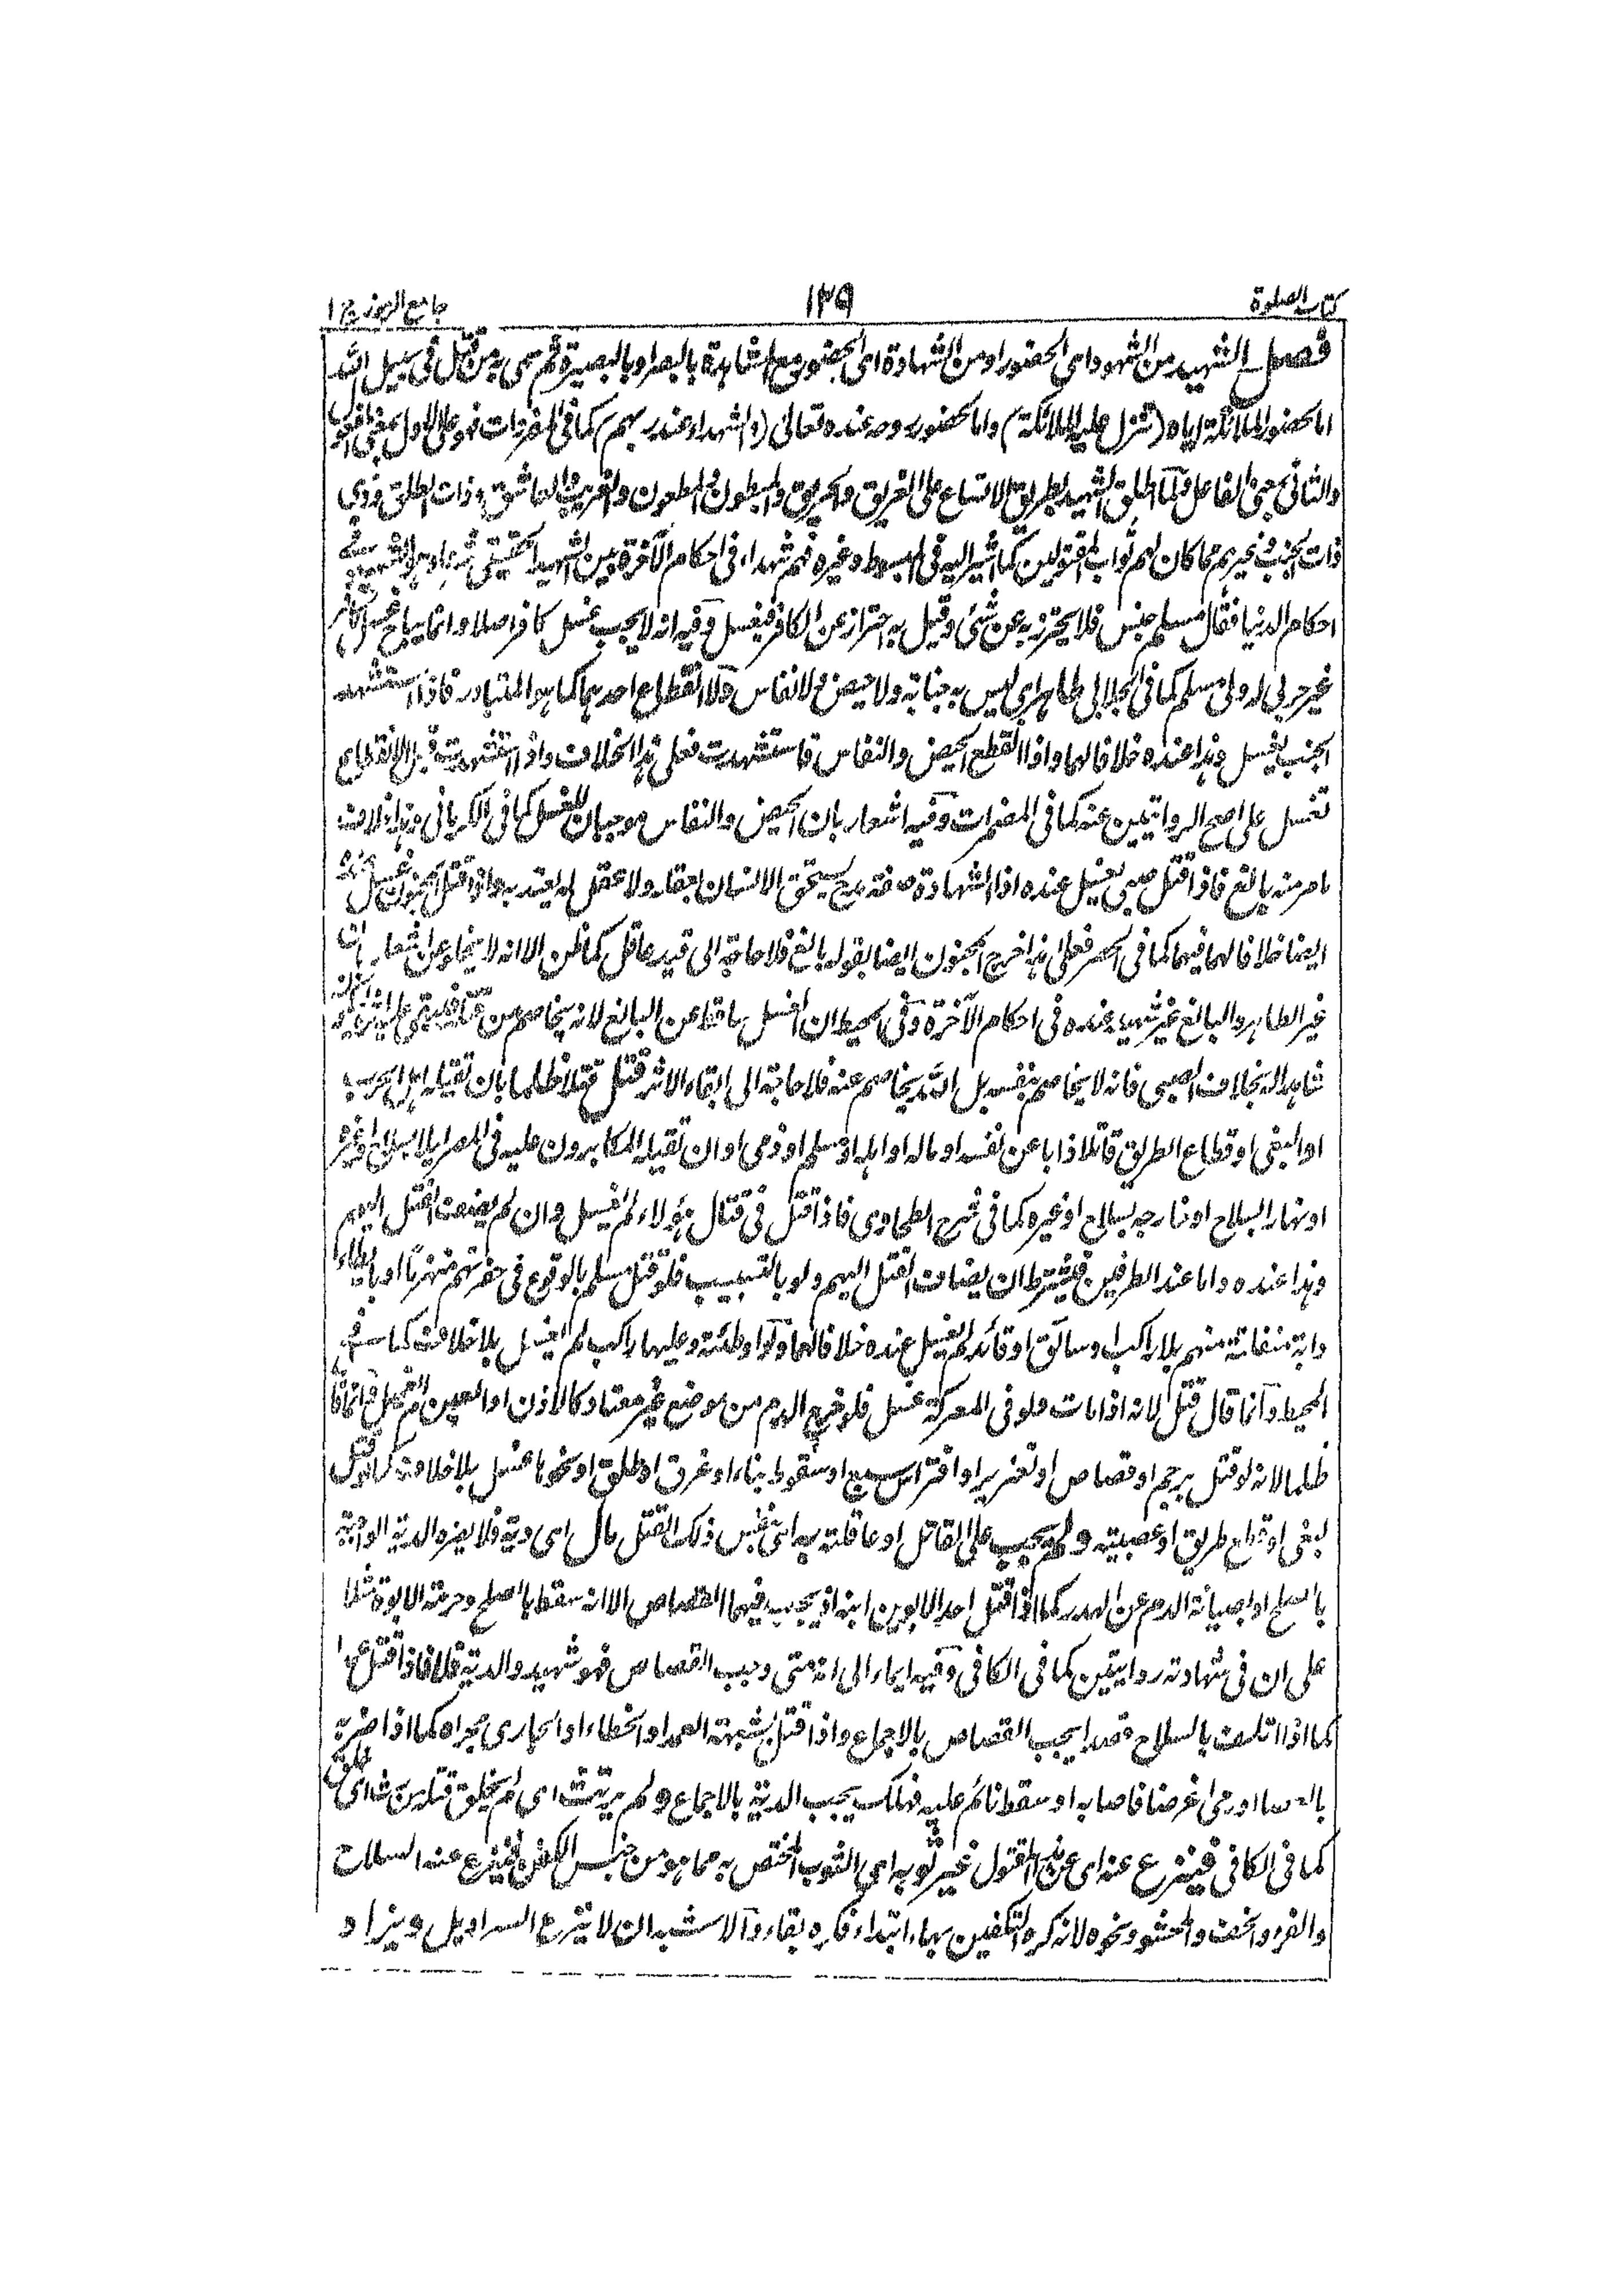 كتاب الصلوة
١٣٩
جامع الرموز ج ١
فصل الشهيد من الشهود اى الحضور او من الشهادة اى الحضور مع المشاهدة بالبصر او بالبصيرة ثم سمى به من قتل فى سبيل الله
اما لحضور الملائكة اياه (تتنزل عليهم الملائكة) واما لحضور روحه عنده تعالى (والشهداء عند ربهم) كما فى المفردات فهو على الاول بمعنى المفعول
والثانى بمعنى الفاعل ولما اطلق الشهيد بطريق الاتساع على الغريق والحريق والمبطون والمطعون والغريب والعاشق وذات الطلق وذى
ذات الجنب وغيرهم مما كان لهم ثواب المقتولين كما اشير اليه فى المبسوط وغيره فهم شهداء فى احكام الآخرة بين الشهيد الحقيقى شرعا وهو الشهيد فى
احكام الدنيا فقال مسلم جنس فلا يحترز به عن شئ وقيل به احتراز عن الكافر فيغسل وفيه انه لا يجب غسل كافر اصلا وانما يباح غسل كافر
غير حربى له ولى مسلم كما فى الجلابى طاهر اى ليس به جنابة ولا حيض ولا نفاس ولا انقطاع احدهما كما هو المتبادر فاذا استشهد
الجنب يغسل وهذا عنده خلافا لهما واذا انقطع الحيض والنفاس فاستشهدت فعلى هذا الخلاف واذا استشهدت قبل الانقطاع
تغسل على اصح الروايتين عنه كما فى المضمرات وفيه اشعار بان الحيض والنفاس موجبان للغسل كما فى الكرمانى وهذا خلاف
ما مر منه بالغ فاذا قتل صبى يغسل عنده اذ الشهادة صفة مدح يستحق الانسان بعقله ولا عقل له يعتد به واذا قتل المجنون غسل عنده
ايضا خلافا لهما فيهما كما فى الحصر فعلى هذا خرج المجنون ايضا بقوله بالغ فلا حاجة الى قيد عاقل كما ظن الا انه لا يخلو عن اشعار بان
غير الطاهر والبالغ غير شهيد عنده فى احكام الآخرة وفى المحيط ان الغسل ساقط عن البالغ لانه يخاصم من قتله فيبقى عليه اثره ليكون
شاهدا له بخلاف الصبى فانه لا يخاصم بنفسه بل الله يخاصم عنه فلا حاجة الى ابقاء الاثر قتل قتلا ظلما بان تقتله اهل الحرب
او البغى او قطاع الطريق قاتلا ذابا عن نفسه او ماله او اهله او مسلم او ذمى او ان تقتله المكابرون عليه فى المصر ليلا بسلاح او غيره
او نهارا بسلاح او خارجه بسلاح او غيره كما فى شرح الطحاوى فاذا قتل فى قتال هؤلاء لم يغسل وان لم يضف القتل اليهم
وهذا عنده واما عند الطرفين فيشترط ان يضاف القتل اليهم ولو بالتسبيب فلو قتل مسلم بالوقوع فى حفرتهم منهزما او بايطاء
دابة منفلتة منهم بلا راكب او سائق او قائد لم يغسل عنده خلافا لهما ولو اوطئته وعليها راكب لم يغسل بلا خلاف كما فى
المحيط وانما قال قتل لانه اذا مات ولو فى المعركة غسل فلو خرج الدم من موضع غير معتاد كالاذن او العين لم يغسل وانما قال
ظلما لانه لو قتل برجم او قصاص او تعزير او افتراس سبع او سقوط بناء او غرق او طلق او نحوها غسل بلا خلاف كما لو قتل
لبغى او قطع طريق او عصبية ولم يجب على القاتل او عاقلته به اى بنفس ذلك القتل مال اى دية فلا يضره الدية الواجبة
بالصلح او لصيانة الدم عن الهدر كما اذا قتل احد الابوين ابنه اذ يجب فيهما القصاص الا انه سقط بالصلح وحرمة الابوة مثلا
على ان فى شهادته روايتين كما فى الكافى وفيه ايماء الى انه متى وجب القصاص فهو شهيد والدية فلا فاذا قتل عمدا
كما اذا اتلف بالسلاح قصدا يجب القصاص بالاجماع واذا قتل بشبهة العمد او الخطاء او الجارى مجراه كما اذا ضربه
بالعصا او رمى غرضا فاصابه او سقط نائم عليه فهلك يجب الدية بالاجماع ولم يرتث اى لم يخلق قتله من ث اى خلق
كما فى الكافى فينزع عنه اى عن هذا المقتول غير ثوبه اى الثوب المختص به مما هو من جنس الكفن فينزع عنه السلاح
والفرو والخف والحشو ونحوه لانه كره التكفين بها ابتداء فكره بقاء والاشبه ان لا ينزع السراويل ويزاد و